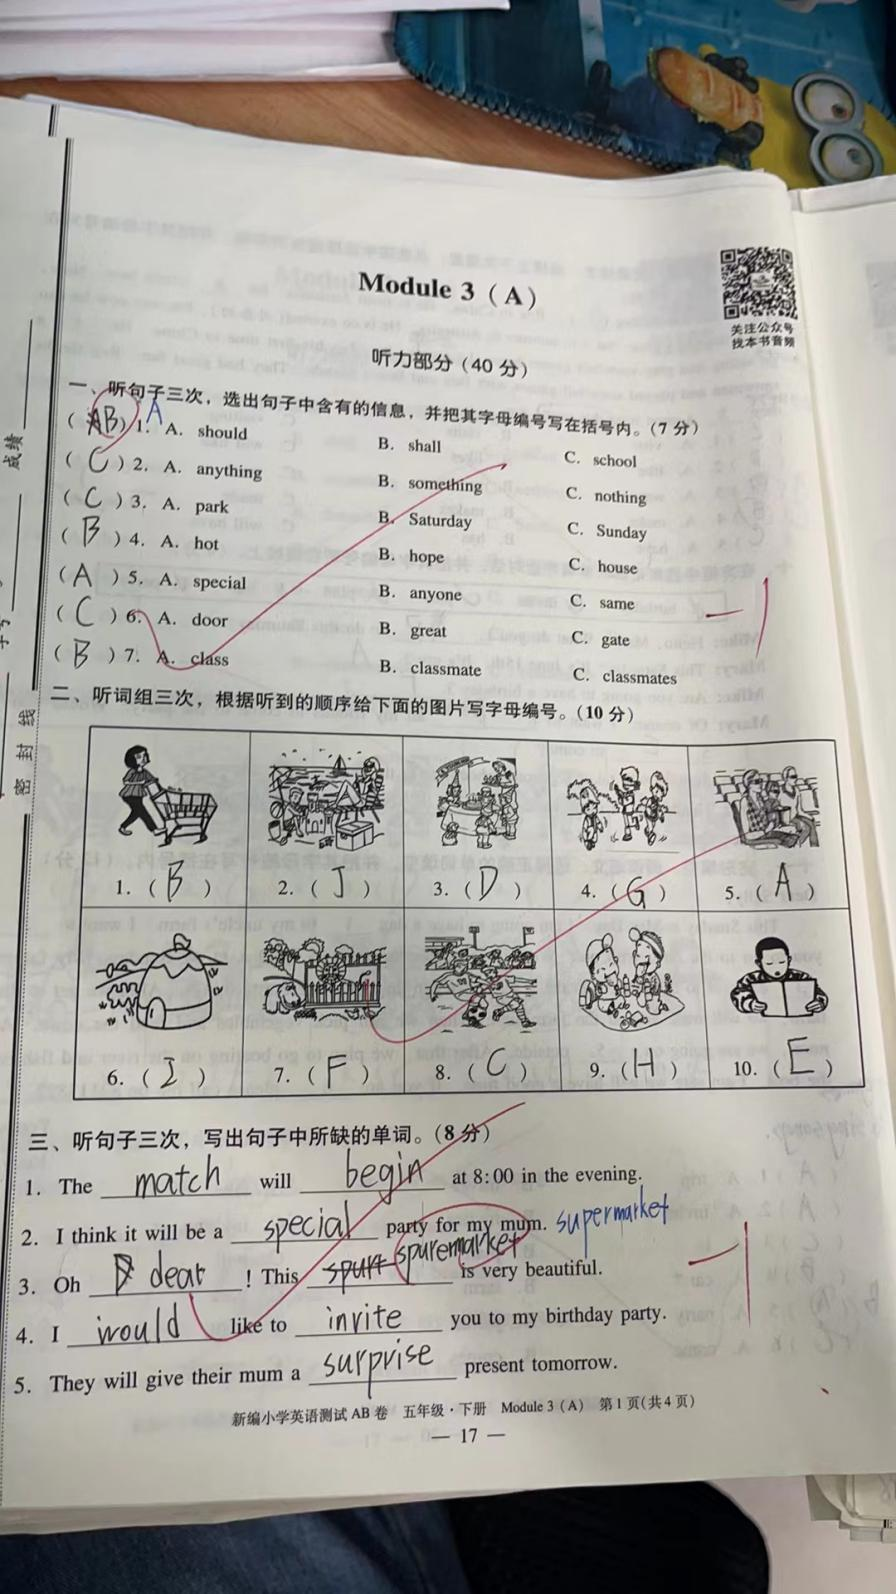 Module 3 (A)
关注公众号
找本书音频
听力部分(40分)
一、听句子三次，选出句子中含有的信息，并把其字母编号写在括号内。(7分)
(AB) A 1. A. should B. shall C. school
(C) 2. A. anything B. something C. nothing
(C) 3. A. park B. Saturday C. Sunday
(B) 4. A. hot B. hope C. house
(A) 5. A. special B. anyone C. same
(C) 6. A. door B. great C. gate
(B) 7. A. class B. classmate C. classmates
-1
二、听词组三次，根据听到的顺序给下面的图片写字母编号。(10分)
1. (B) 2. (J) 3. (D) 4. (G) 5. (A)
6. (I) 7. (F) 8. (C) 9. (H) 10. (E)
三、听句子三次，写出句子中所缺的单词。(8分)
1. The match will begin at 8:00 in the evening.
2. I think it will be a special party for my mum. supermarket
3. Oh dear ! This spuremarket is very beautiful.
-1
4. I would like to invite you to my birthday party.
5. They will give their mum a surprise present tomorrow.
新编小学英语测试AB卷 五年级·下册 Module 3 (A) 第1页(共4页)
— 17 —
成绩
密封线